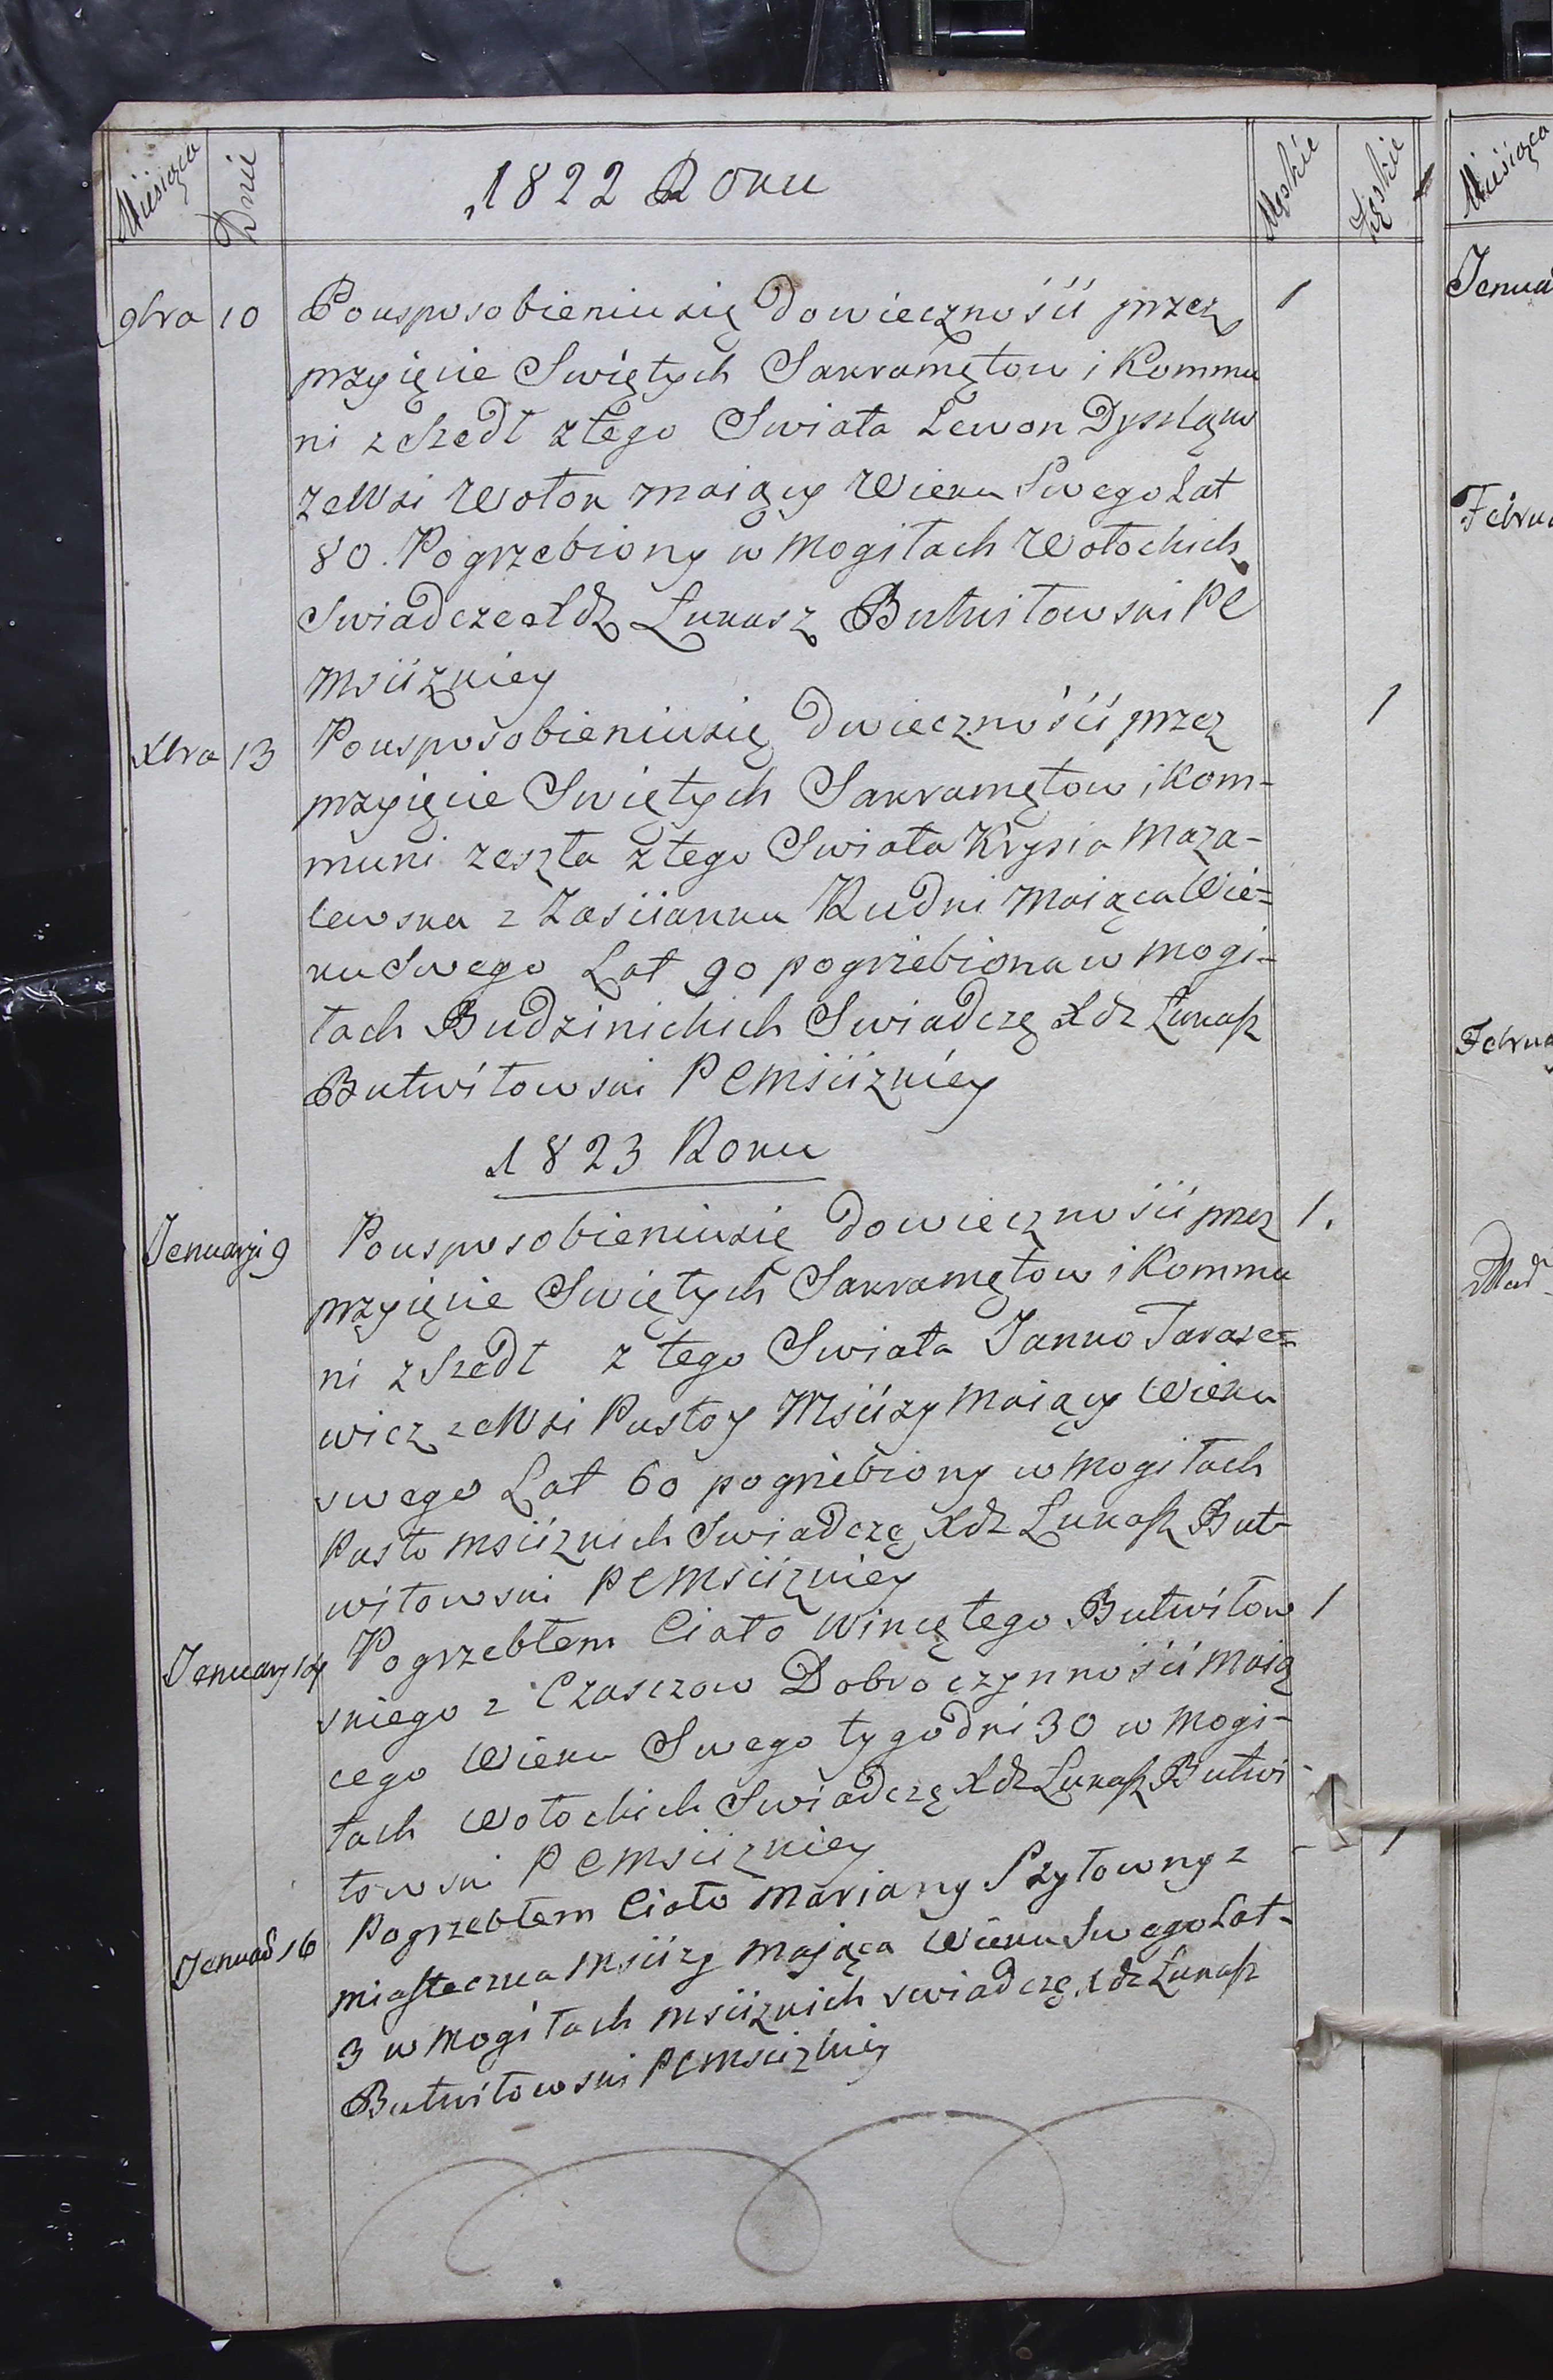 Miesiąca Dnie 1822 Roku Męskie Żęskie
9bra 10 Pousposobieniu się do wieczności przez 1
przyięcie Swiętych Sakramętow i Kommu
ni zszedł z tego Swiata Lewon
ze Wsi Wołok maiący Wieku Swego Lat
80. Pogrzebiony w Mogiłach Wołockich
Swiadcze Xdz Łukasz Butwiłowski PC
Msciżkiey
Xbra 13 Pousposobieniu się dwieczności przez 1
przyięcie Swiętych Sakramętow i Kom-
muni zeszła z tego Swiata Krysia Maza-
lewska z Zaścianku Rudni Maiąca Wie=
ku Swego Lat 90 pogrzebiona w Mogi-
łach Budzinickich Swiadczę Xdz Łukasz
Butwiłowski PCMsciżkiey
1823 Roku
Jenuaryi 9 Pousposobieniu się do wieczności przez 1.
przyięcie Swiętych Sakramętow i Kommu
ni zszedł z tego Swiata Janko Tarase=
wicz ze Wsi Pustoy Mściży Maiący Wieku
swego Lat 60 pogrzebiony w Mogiłach
Pusto Msciżkich Swiadczę Xdz Łukasz But-
witowski PCMsciżkiey
Jenuary 14 Pogrzebłem Ciało Wincętego Butwiłow 1
skiego z Czaszow Dobroczynności Maią
cego Wieku Swego tygodni 30 w Mogi-
łach Wołockich Swiadczę Xdz Łukasz Butwi-
łowski PCMsciżkiey
Jenuar 16 Pogrzebłem Ciało Mariany Szyłowny z 1
miasteczka Msciży mająca Wieku Swego Lat-
3 w Mogiłach Msciżkich swiadczę Xdz Łukasz
Butwiłowski PCMsciżkiey
Miesiąca
Jenua
Februa
Februa